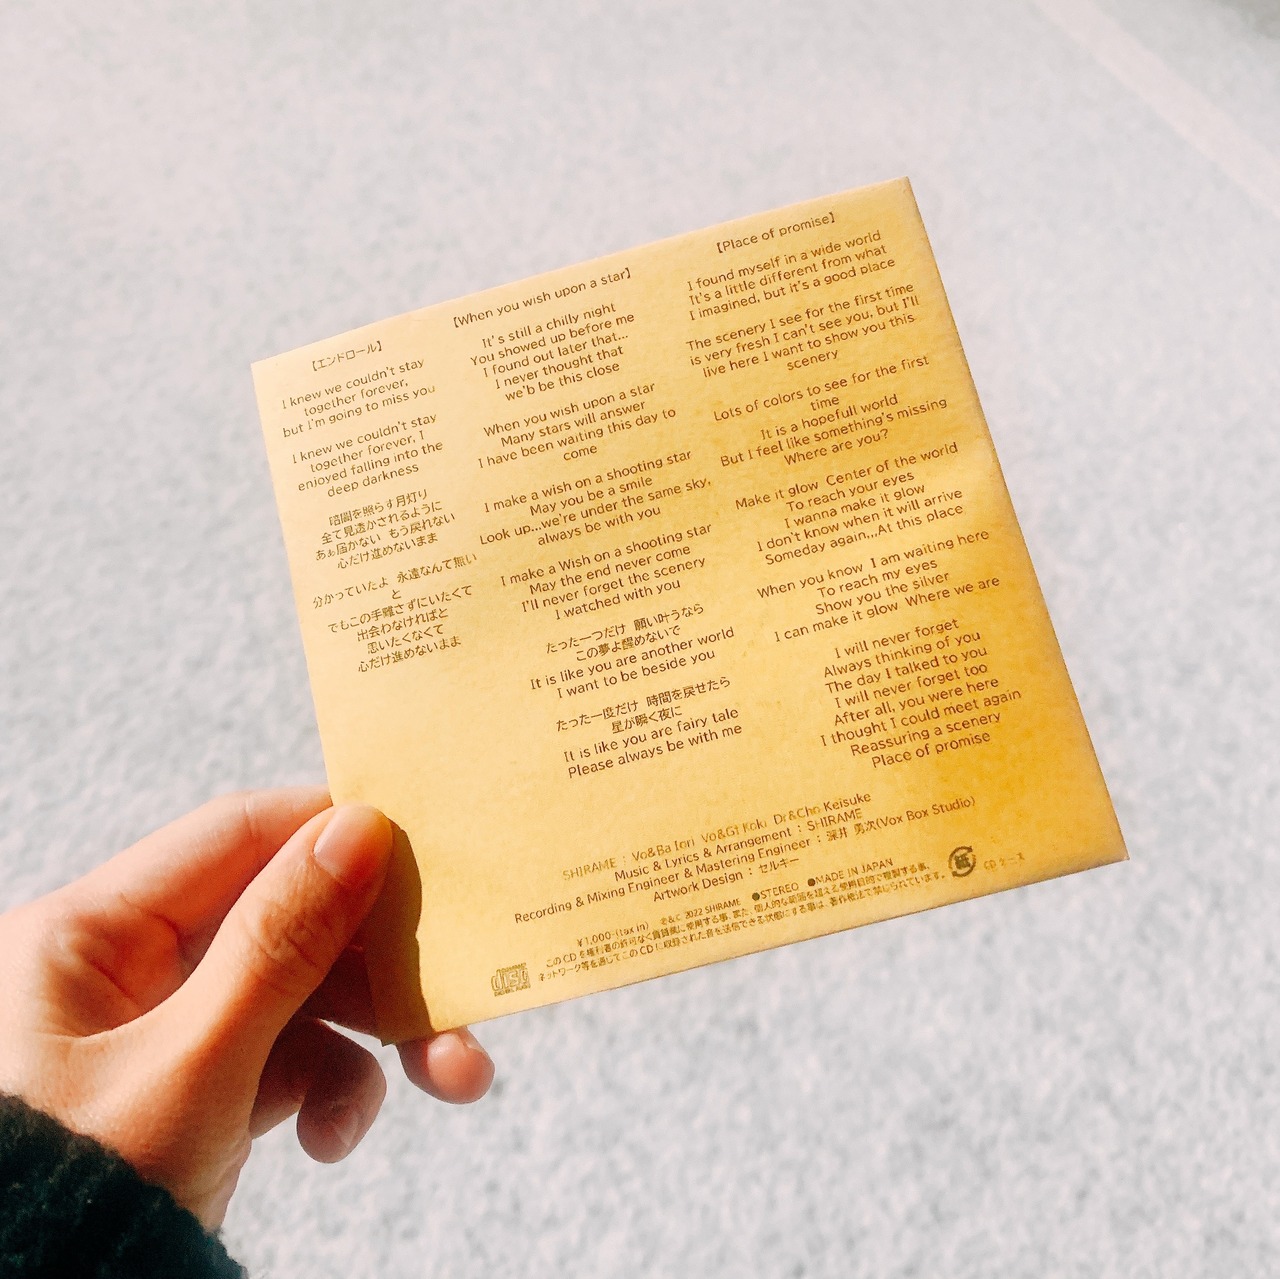 【エンドロール】
I knew we couldn't stay
together forever,
but I'm going to miss you
I knew we couldn't stay
together forever, I
enjoyed falling into the
deep darkness
暗闇を照らす月灯り
全て見透かされるように
あぁ届かない もう戻れない
心だけ進めないまま
分かっていたよ 永遠なんて無い
と
でもこの手離さずにいたくて
出会わなければと
思いたくなくて
心だけ進めないまま
【When you wish upon a star】
It's still a chilly night
You showed up before me
I found out later that...
I never thought that
we'b be this close
When you wish upon a star
Many stars will answer
I have been waiting this day to
come
I make a wish on a shooting star
May you be a smile
Look up...we're under the same sky,
always be with you
I make a Wish on a shooting star
May the end never come
I'll never forget the scenery
I watched with you
たった一つだけ 願い叶うなら
この夢よ醒めないで
It is like you are another world
I want to be beside you
たった一度だけ 時間を戻せたら
星が瞬く夜に
It is like you are fairy tale
Please always be with me
【Place of promise】
I found myself in a wide world
It's a little different from what
I imagined, but it's a good place
The scenery I see for the first time
is very fresh I can't see you, but I'll
live here I want to show you this
scenery
Lots of colors to see for the first
time
It is a hopefull world
But I feel like something's missing
Where are you?
Make it glow Center of the world
To reach your eyes
I wanna make it glow
I don't know when it will arrive
Someday again,,,At this place
When you know I am waiting here
To reach my eyes
Show you the silver
I can make it glow Where we are
I will never forget
Always thinking of you
The day I talked to you
I will never forget too
After all, you were here
I thought I could meet again
Reassuring a scenery
Place of promise
SHIRAME : Vo&Ba Iori Vo&Gt Koki Dr&Cho Keisuke
Music & Lyrics & Arrangement : SHIRAME
Recording & Mixing Engineer & Mastering Engineer : 深井 勇次(Vox Box Studio)
Artwork Design : セルキー
¥1,000-(tax in) ℗&© 2022 SHIRAME ●STEREO ●MADE IN JAPAN
このCDを権利者の許可なく賃貸業に使用する事、また、個人的な範囲を超える使用目的で複製する事、
ネットワーク等を通してこのCDに収録された音を送信できる状態にする事は、著作権法で禁じられています。
紙
CDケース
COMPACT
disc
DIGITAL AUDIO